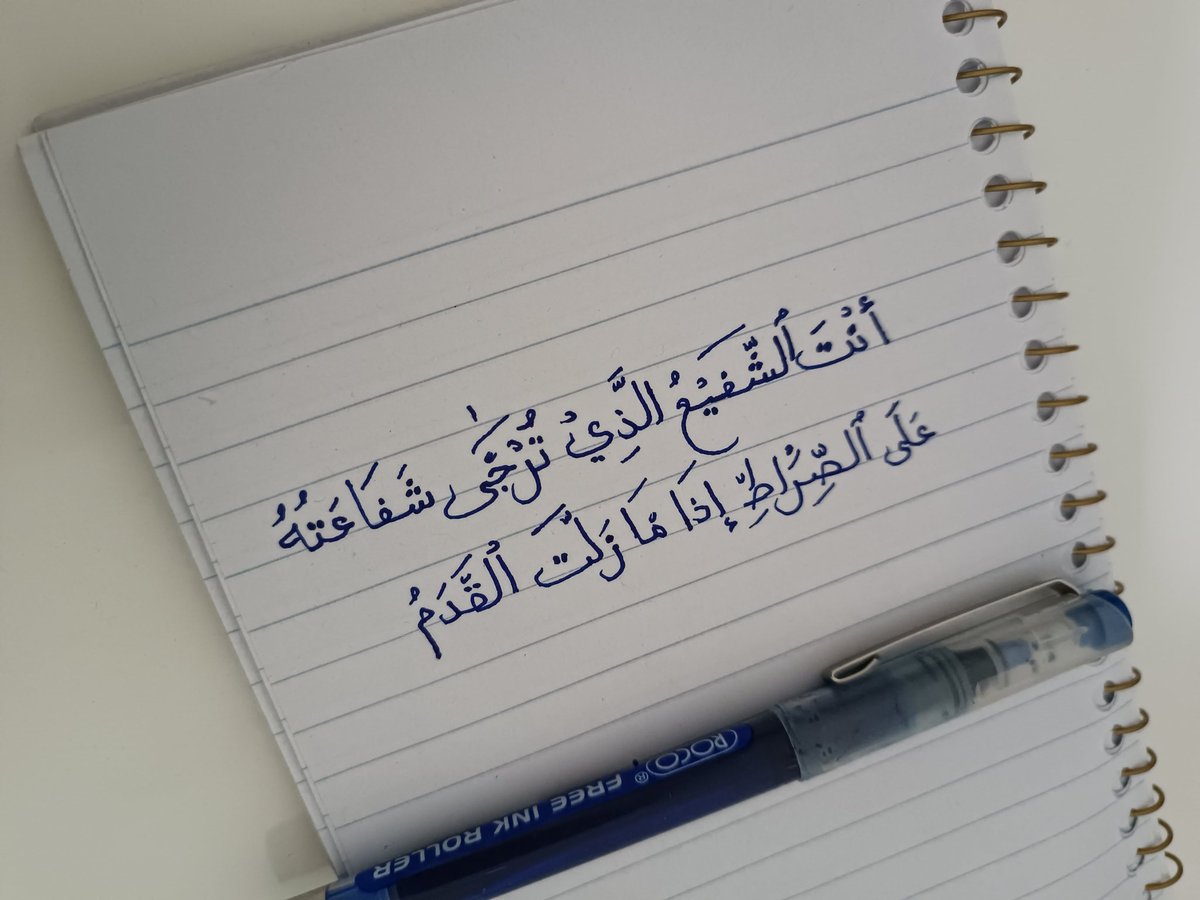 أَنْتَ ٱلشَّفِيْعُ الَّذِيْ تُرْجَىٰ شَفَاعَتُهُ
عَلَى ٱلصِّرَاطِ إِذَا مَا زَلَّتَ ٱلْقَدَمُ
ROCO® FREE INK ROLLER